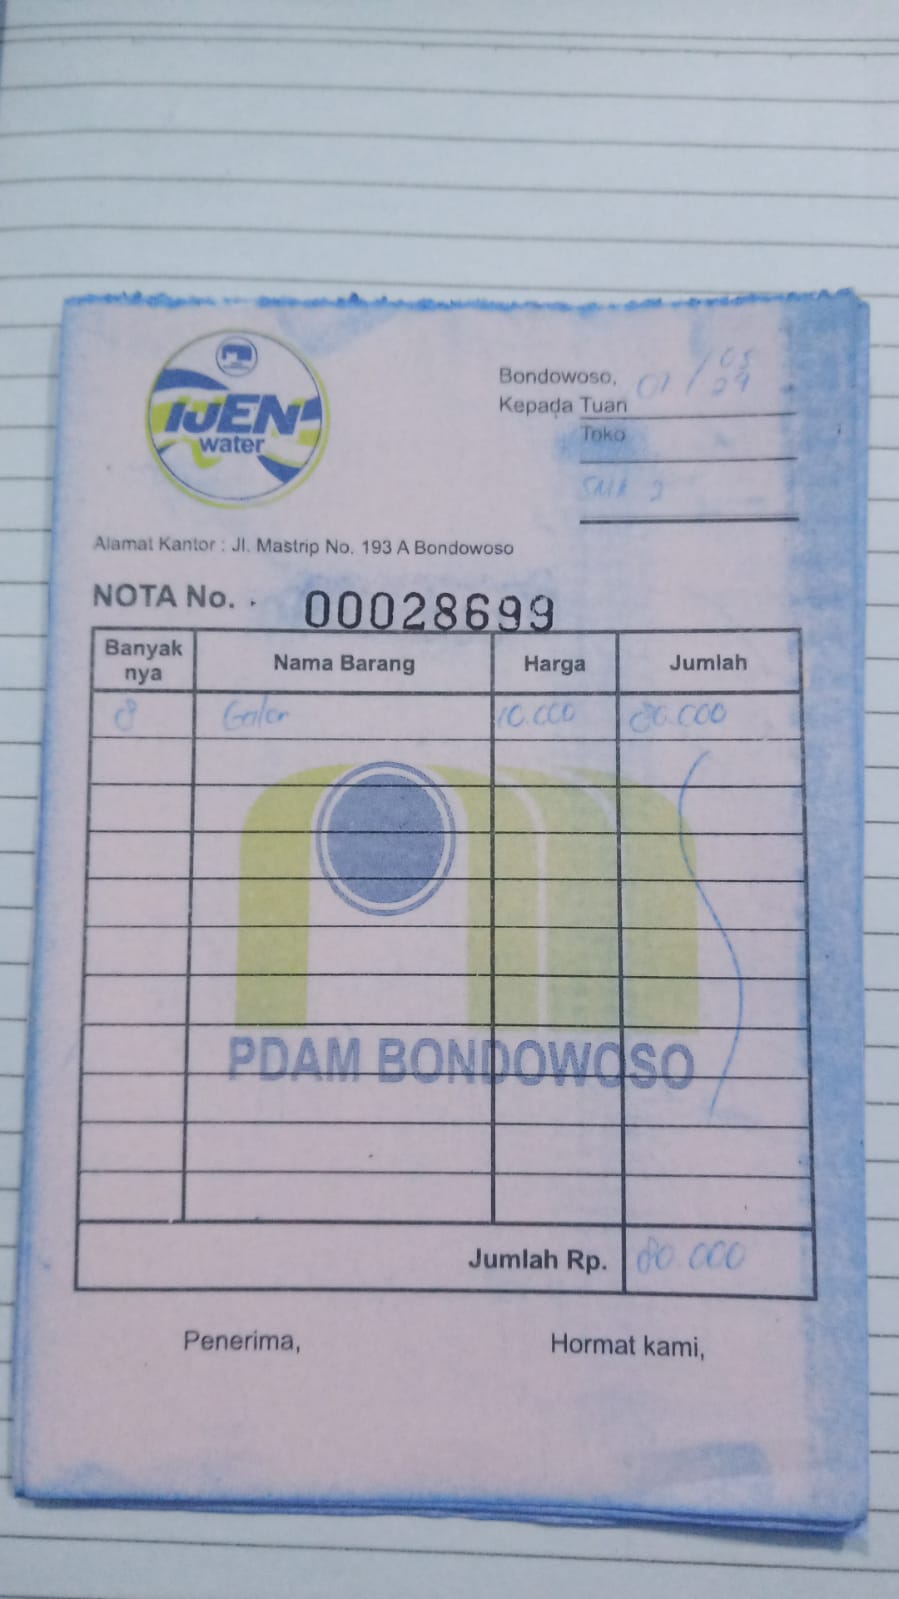 IJEN
water
Bondowoso, 07/05 24
Kepada Tuan
Toko
SMA 2
Alamat Kantor : Jl. Mastrip No. 193 A Bondowoso
NOTA No. 00028699
Banyak nya Nama Barang Harga Jumlah
8 Galon 10.000 80.000
PDAM BONDOWOSO
Jumlah Rp. 80.000
Penerima, Hormat kami,